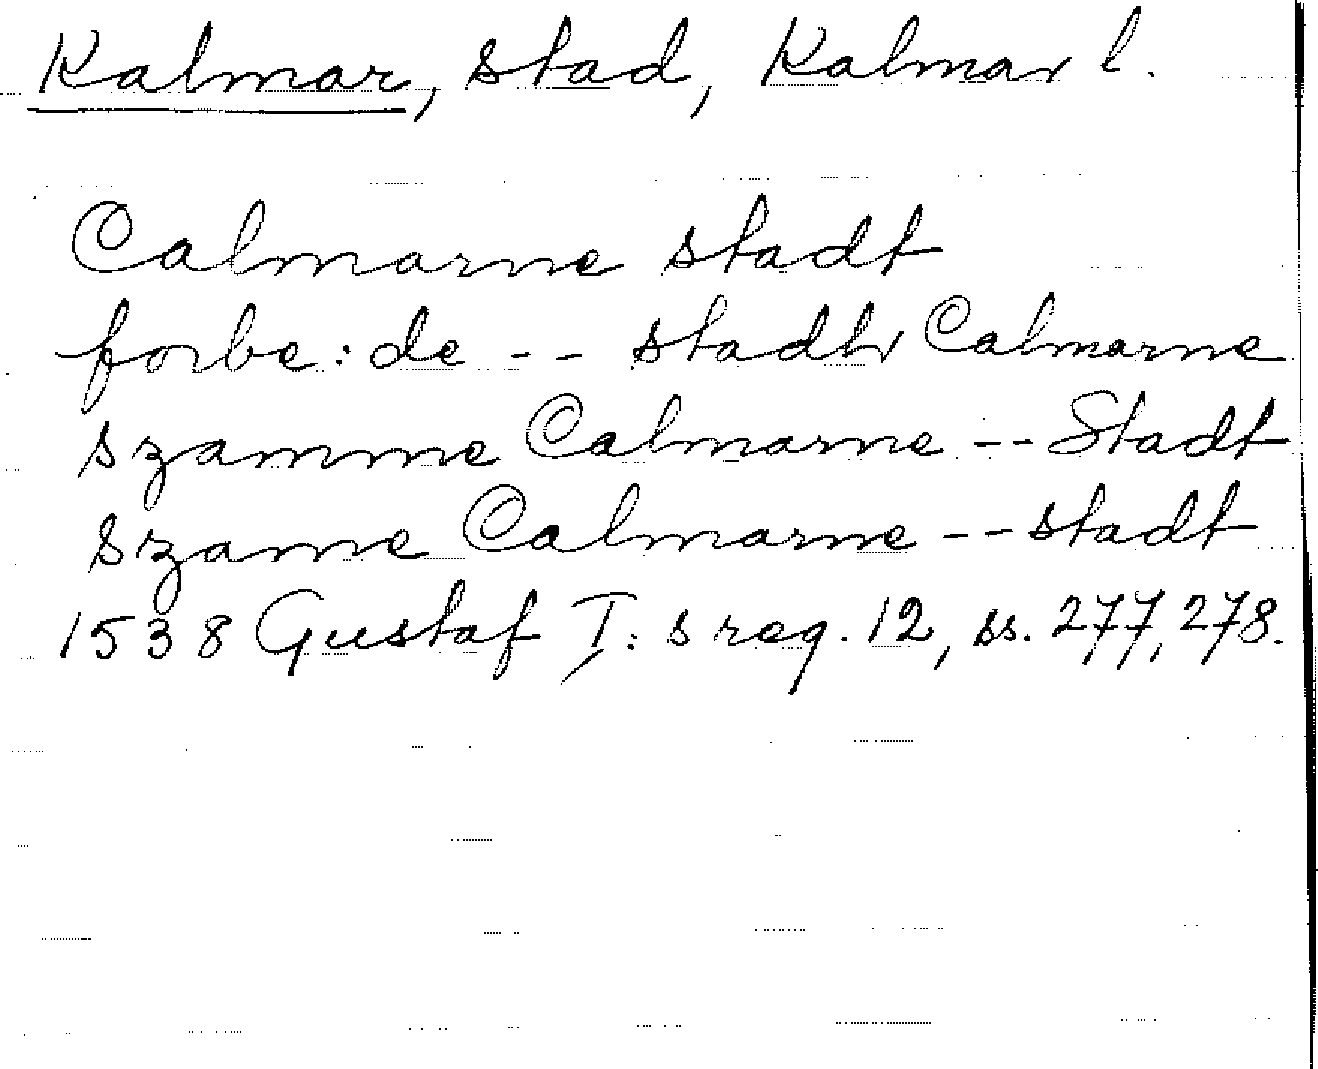 Kalmar, stad, Kalmar l.
Calmarne stadt
forbe: de -- stadhr Calmarne
szamme Calmarne -- Stadt
szame Calmarne -- stadt
1538 Gustaf I: s reg. 12, ss. 277, 278.